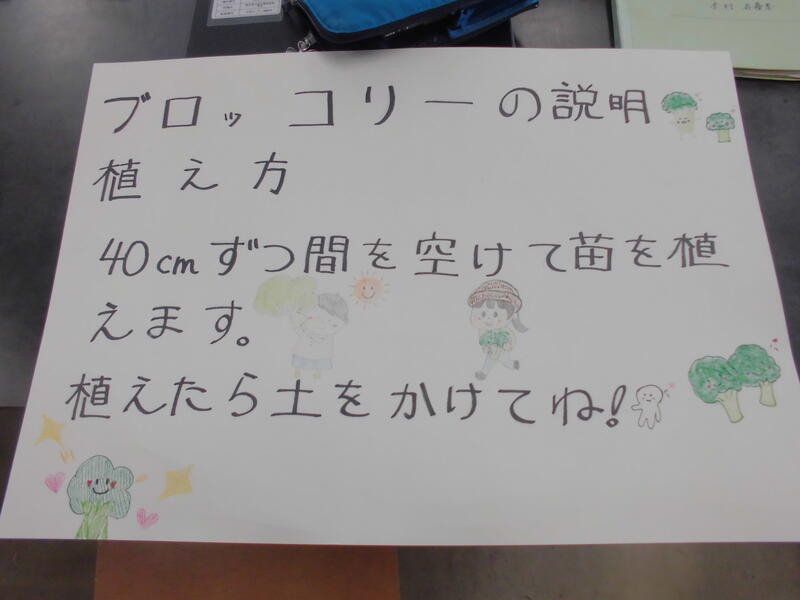 ブロッコリーの説明
植え方
40cmずつ間を空けて苗を植
えます。
植えたら土をかけてね!